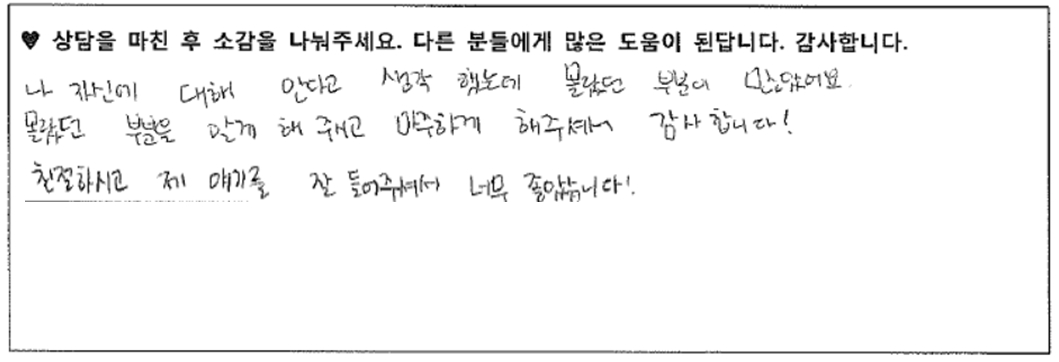 ♥ 상담을 마친 후 소감을 나눠주세요. 다른 분들에게 많은 도움이 된답니다. 감사합니다.
나 자신에 대해 안다고 생각 했는데 몰랐던 부분이 많았어요.
몰랐던 부분을 알게 해 주시고 마주하게 해주셔서 감사합니다!
친절하시고 제 얘기를 잘 들어주셔서 너무 좋았습니다!